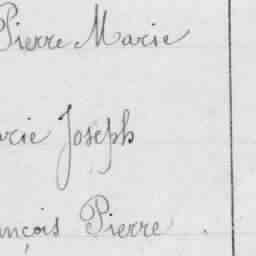 Pierre Marie
arie Joseph
ançois Pierre